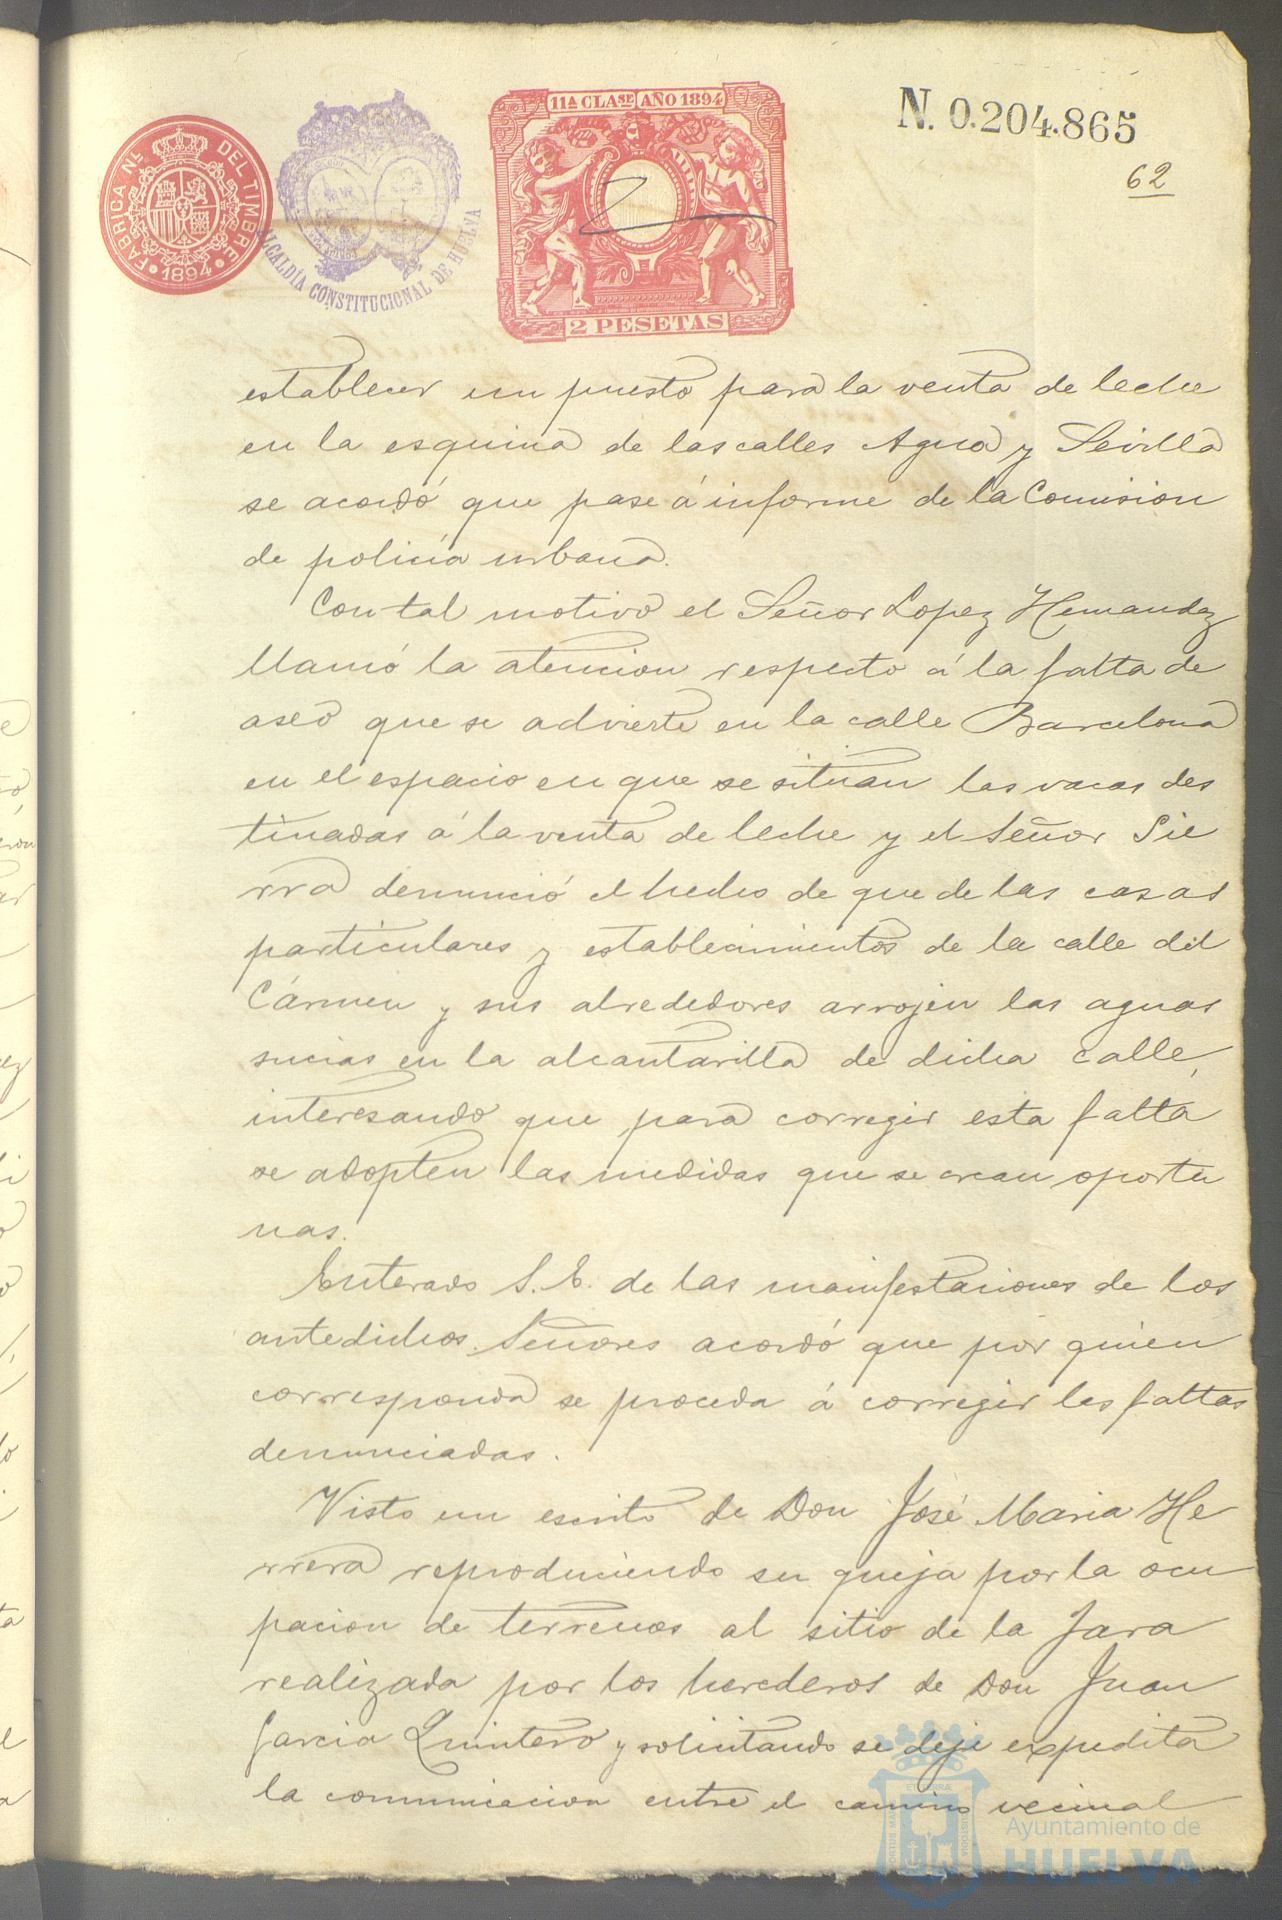 11ª CLASE AÑO 1894
N. 0.204.865
FABRICA NL. DEL TIMBRE
1894
ALCALDÍA CONSTITUCIONAL DE HUELVA
2 PESETAS
62
establecer un puesto para la venta de leche
en la esquina de las calles Agua y Sevilla
se acordó que pase á informe de la Comision
de policía urbana.
Con tal motivo el Señor Lopez Hernandez
llamó la atencion respecto á la falta de
aseo que se advierte en la calle Barcelona
en el espacio en que se situan las vacas des
tinadas á la venta de leche y el Señor Sie
rra denunció el hecho de que de las casas
particulares y establecimientos de la calle del
Cármen y sus alrededores arrojen las aguas
sucias en la alcantarilla de dicha calle,
interesando que para corregir esta falta
se adopten las medidas que se crean oportu
nas.
Enterado S. E. de las manifestaciones de los
antedichos Señores acordó que por quien
corresponda se proceda á corregir las faltas
denunciadas.
Visto un escrito de Don José Maria He
rrera reproduciendo su queja por la ocu
pacion de terrenos al sitio de la Jara
realizada por los herederos de Don Juan
Garcia Quintero y solicitando se deje expedita
la comunicacion entre el camino vecinal
Ayuntamiento de
HUELVA